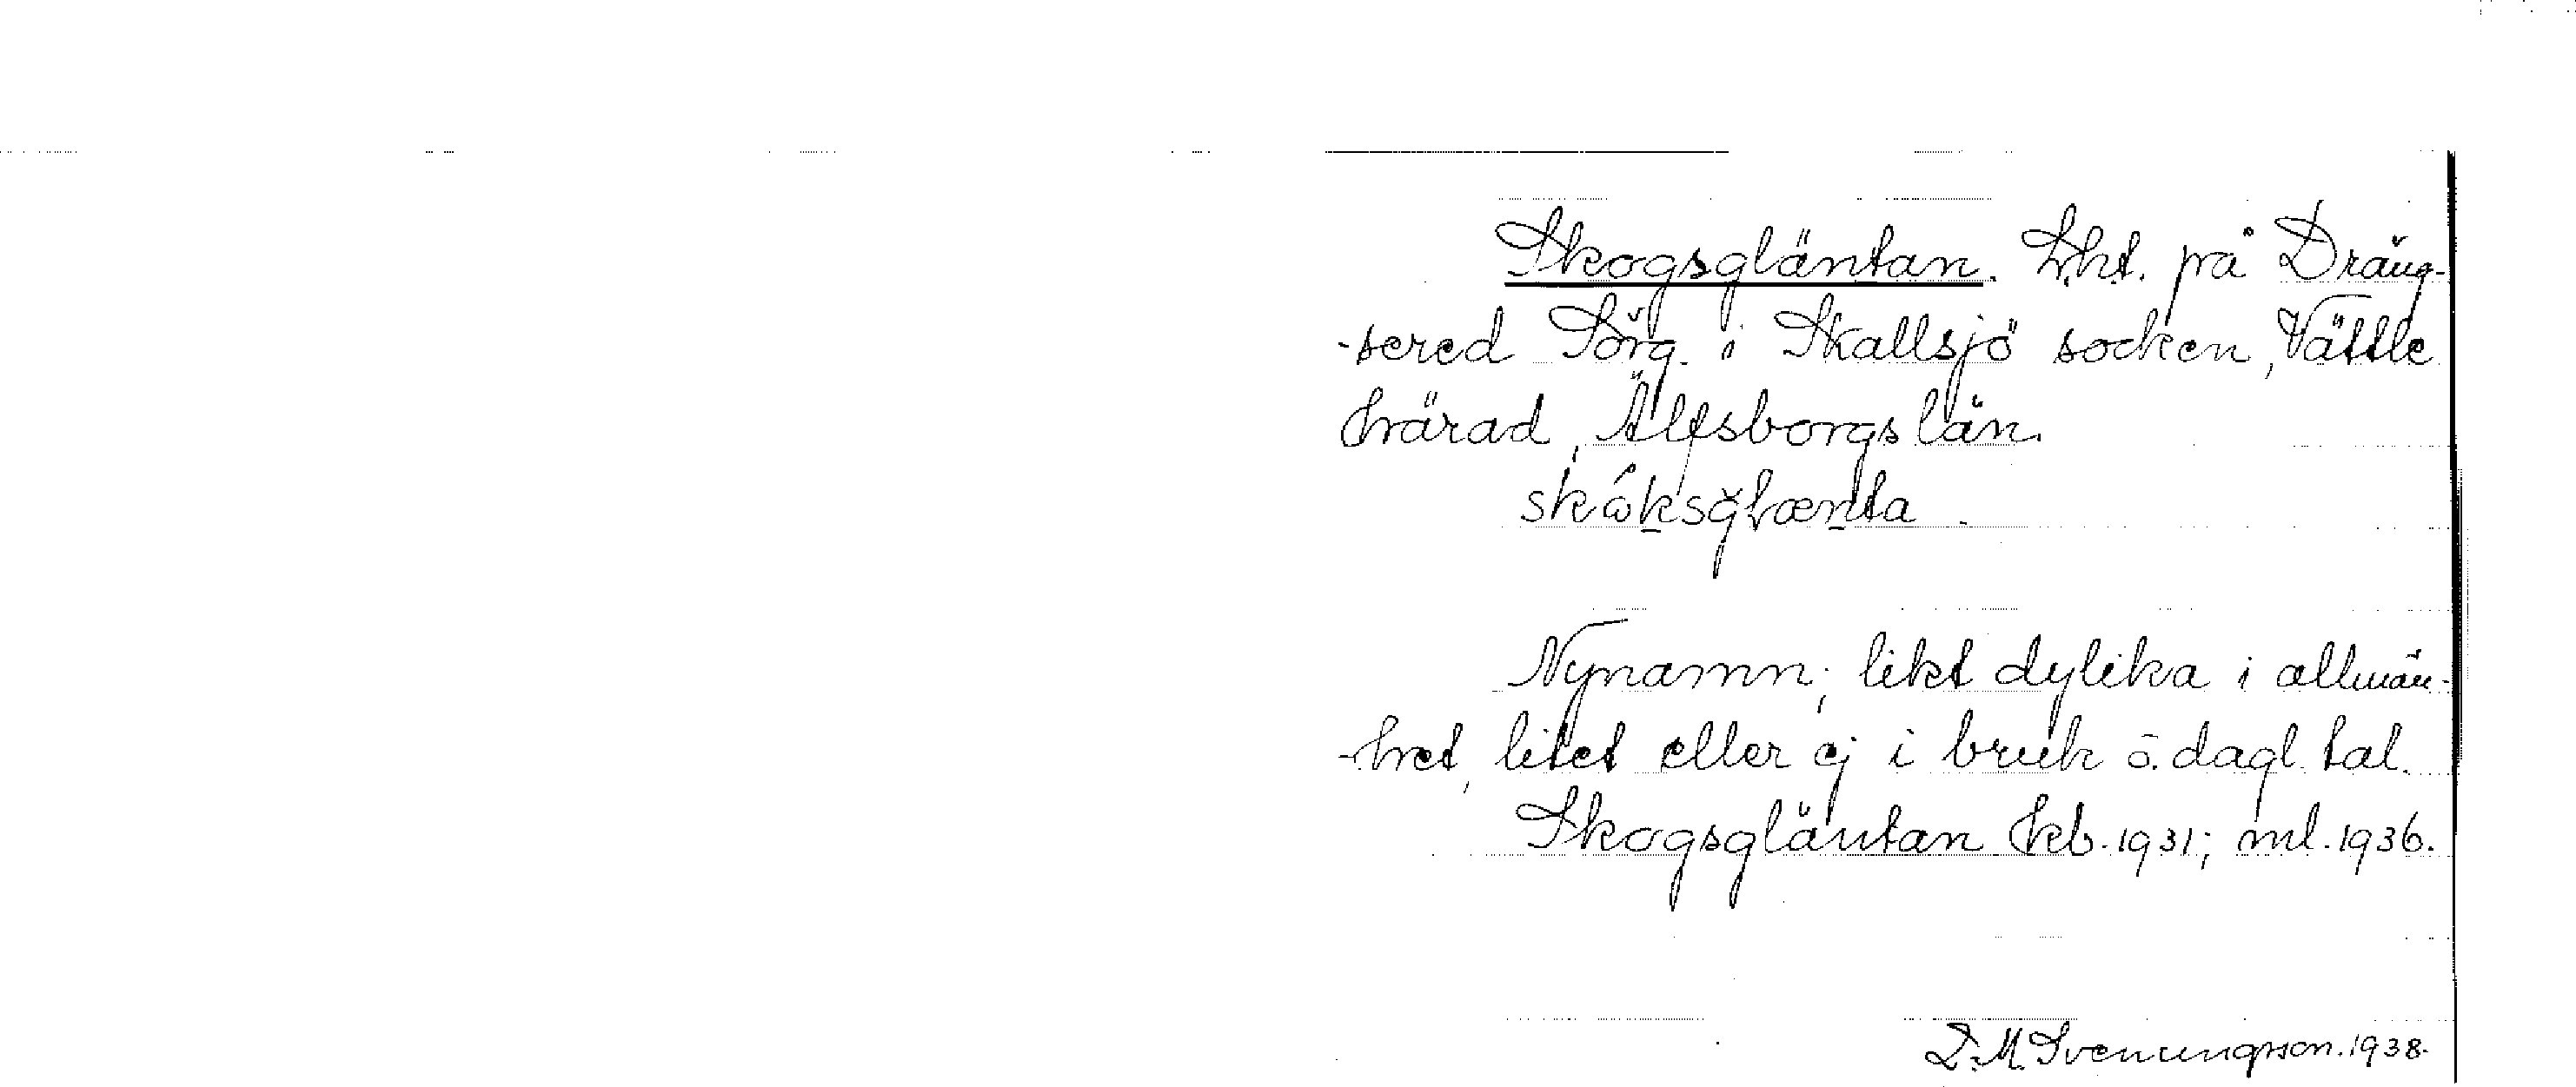 Skogsgläntan. Lht. på Dräng-
-sered Sörg. i Skallsjö socken, Vättle
härad, Älfsborgs län.
Nynamn; likt dylika i allmän-
-het, litet eller ej i bruk i dagl. tal.
Skogsgläntan kb. 1931; ml. 1936.
D. M. Svenungsson. 1938.